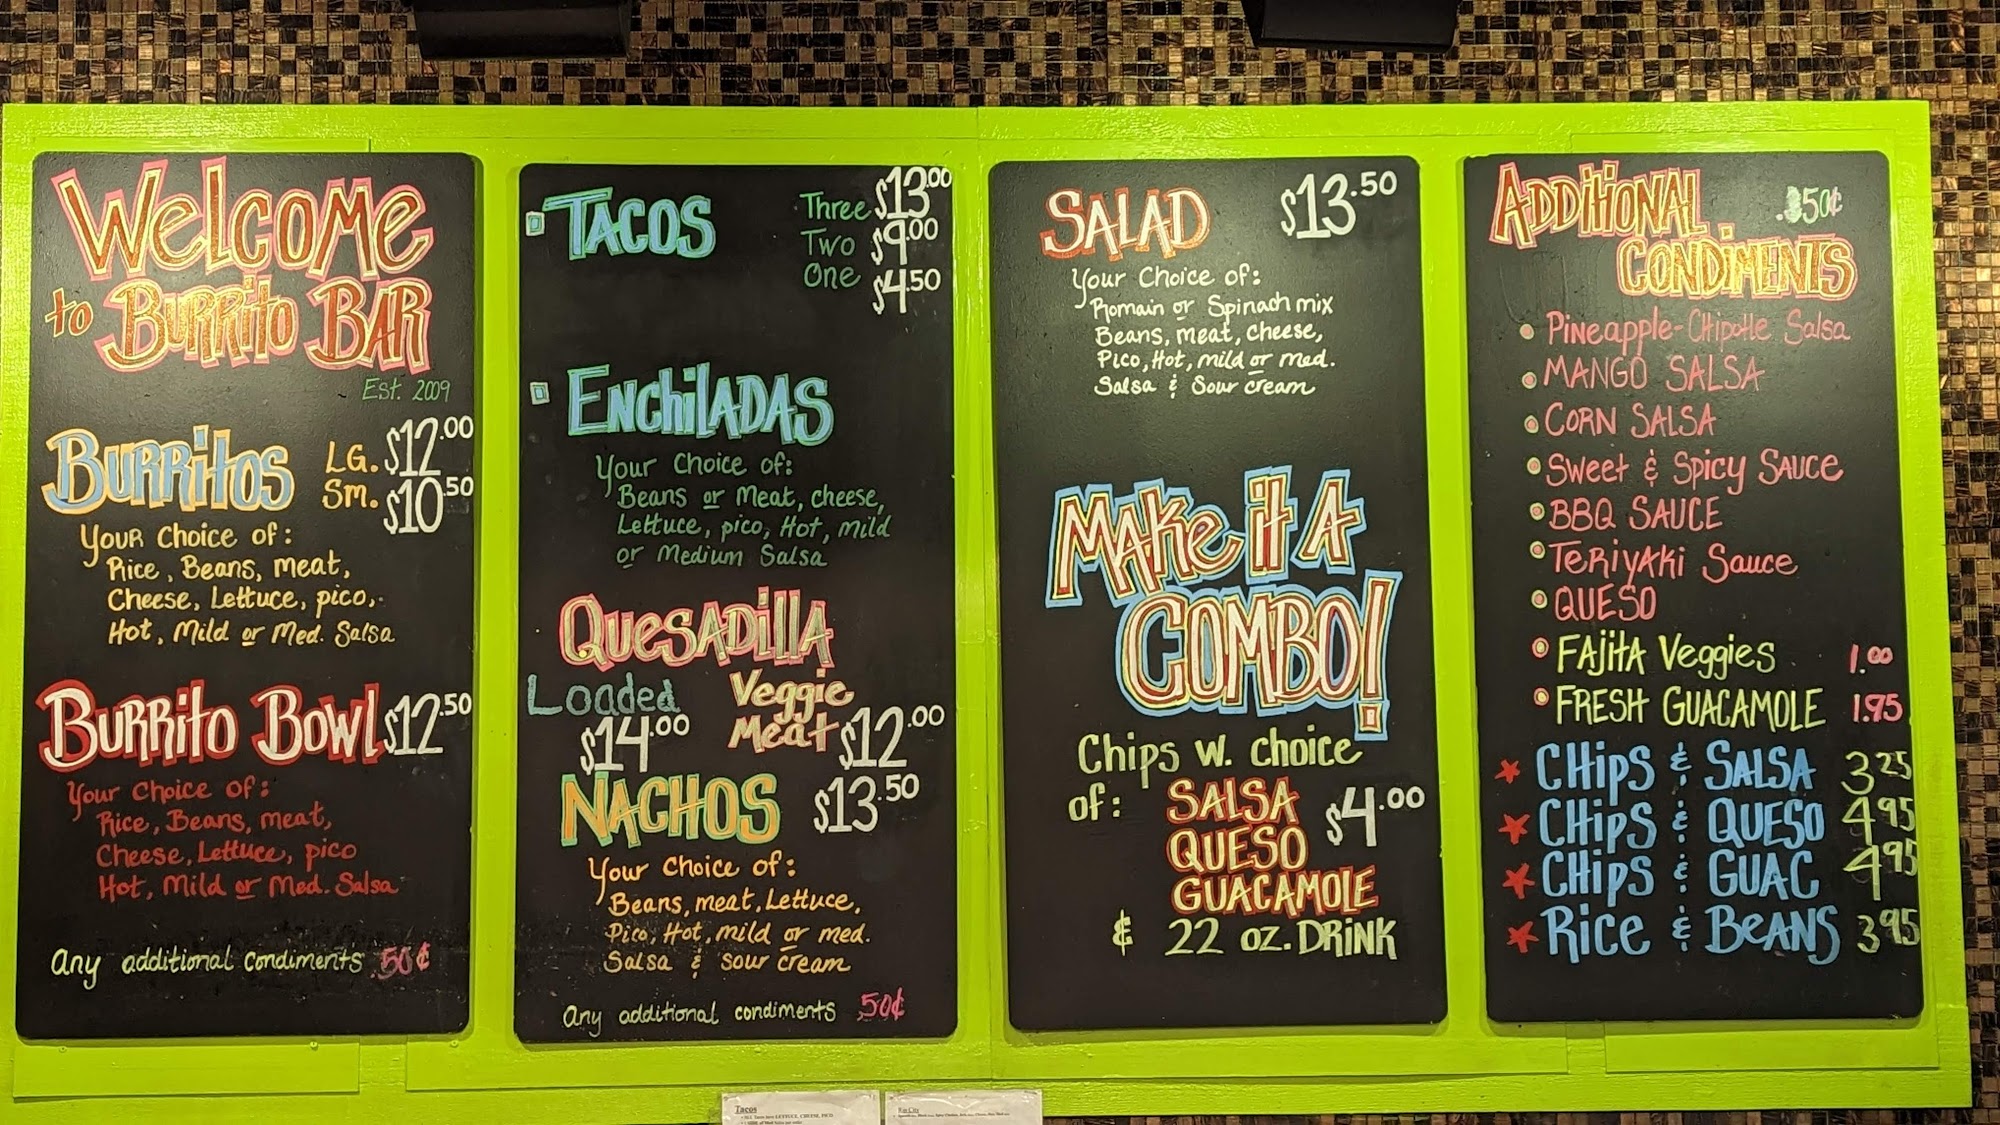 Welcome
to Burrito Bar
Est. 2009
Burritos LG. $12.00
Sm. $10.50
Your Choice of:
Rice, Beans, meat,
Cheese, Lettuce, pico,
Hot, Mild or Med. Salsa
Burrito Bowl $12.50
Your Choice of:
Rice, Beans, meat,
Cheese, Lettuce, pico
Hot, Mild or Med. Salsa
Any additional condiments .50¢
Tacos Three $13.00
Two $9.00
One $4.50
Enchiladas
Your Choice of:
Beans or Meat, cheese,
Lettuce, pico, Hot, mild
or Medium Salsa
Quesadilla
Loaded Veggie
$14.00 Meat $12.00
Nachos $13.50
Your Choice of:
Beans, meat, Lettuce,
Pico, Hot, mild or med.
Salsa & sour cream
Any additional condiments .50¢
Salad $13.50
Your Choice of:
Romain or Spinach mix
Beans, meat, cheese,
Pico, Hot, mild or med.
Salsa & Sour cream
Make it A
Combo!
Chips w. choice
of: Salsa $4.00
Queso
Guacamole
& 22 oz. Drink
Additional .$50¢
Condiments
Pineapple-Chipotle Salsa
Mango Salsa
Corn Salsa
Sweet & Spicy Sauce
BBQ Sauce
Teriyaki Sauce
Queso
Fajita Veggies 1.00
Fresh Guacamole 1.95
Chips & Salsa 3.25
Chips & Queso 4.95
Chips & Guac 4.95
Rice & Beans 3.95
Tacos